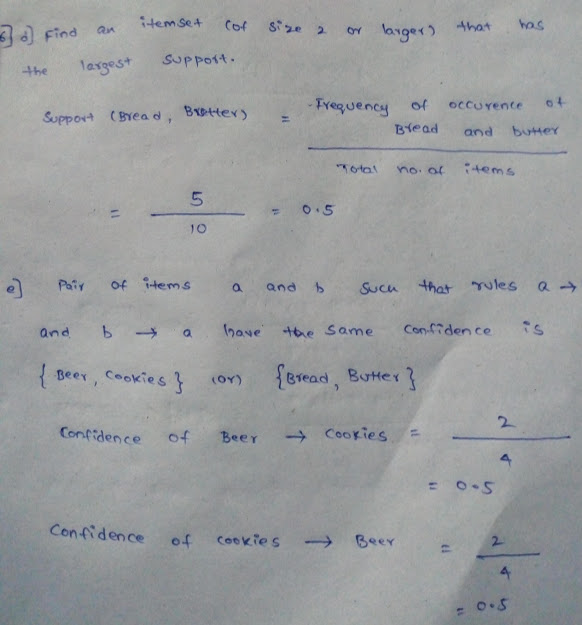 6] d] Find an itemset (of size 2 or larger) that has
the largest support.
Support (Bread, Butter) = Frequency of occurence of
Bread and butter
Total no. of items
= 5
10
= 0.5
e] Pair of items a and b such that rules a →
and b → a have the same confidence is
{Beer, Cookies} (or) {Bread, Butter}
Confidence of Beer → Cookies = 2
4
= 0.5
Confidence of cookies → Beer = 2
4
= 0.5